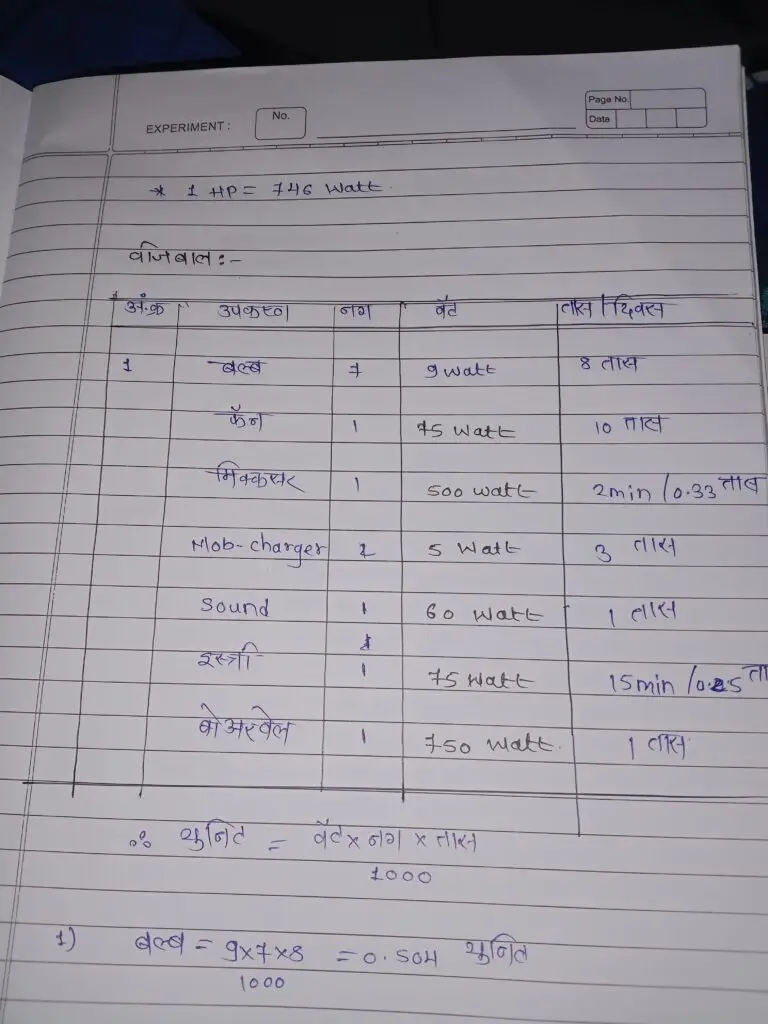 Page No.
EXPERIMENT : No. Date
* 1 HP = 746 Watt.
वजिबाल :-
अं.क्र उपकरण नग वॅट तास/दिवस
1 बल्ब 7 9 watt 8 तास
फॅन 1 75 Watt 10 तास
मिक्कसर 1 500 watt 2min/0.33 तास
Mob-charger 2 5 Watt 3 तास
Sound 1 60 Watt 1 तास
इस्त्री 1 75 Watt 15min/0.25 ता
बोअरवेल 1 750 Watt. 1 तास
∴ युनिट = वॅट x नग x तास
1000
1) बल्ब = 9x7x8 = 0.504 युनिट
1000